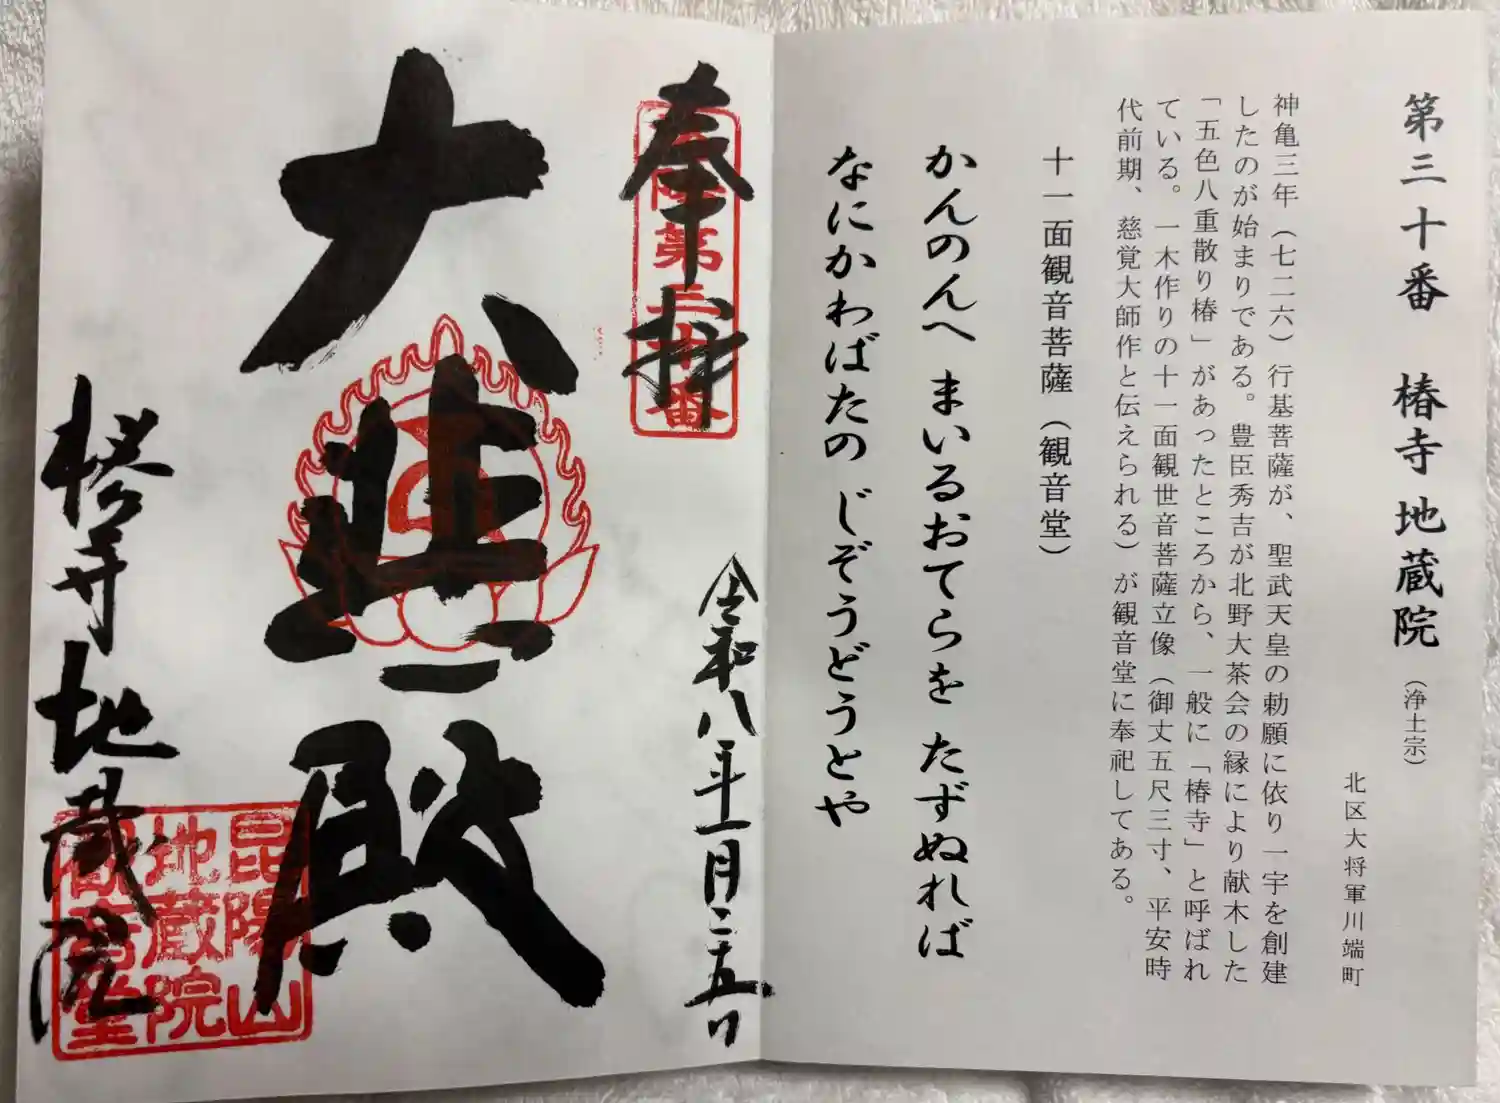 第三十番 椿寺地蔵院（浄土宗）
北区大将軍川端町
神亀三年（七二六）行基菩薩が、聖武天皇の勅願に依り一宇を創建
したのが始まりである。豊臣秀吉が北野大茶会の縁により献木した
「五色八重散り椿」があったところから、一般に「椿寺」と呼ばれ
ている。一木作りの十一面観世音菩薩立像（御丈五尺三寸、平安時
代前期、慈覚大師作と伝えられる）が観音堂に奉祀してある。
十一面観音菩薩（観音堂）
かんのんへ まいるおてらを たずぬれば
なにかわばたの じぞうどうとや
奉拝
第三十番
令和八年一月二五日
大悲殿
椿寺地蔵院
昆陽山
地蔵院
観音堂